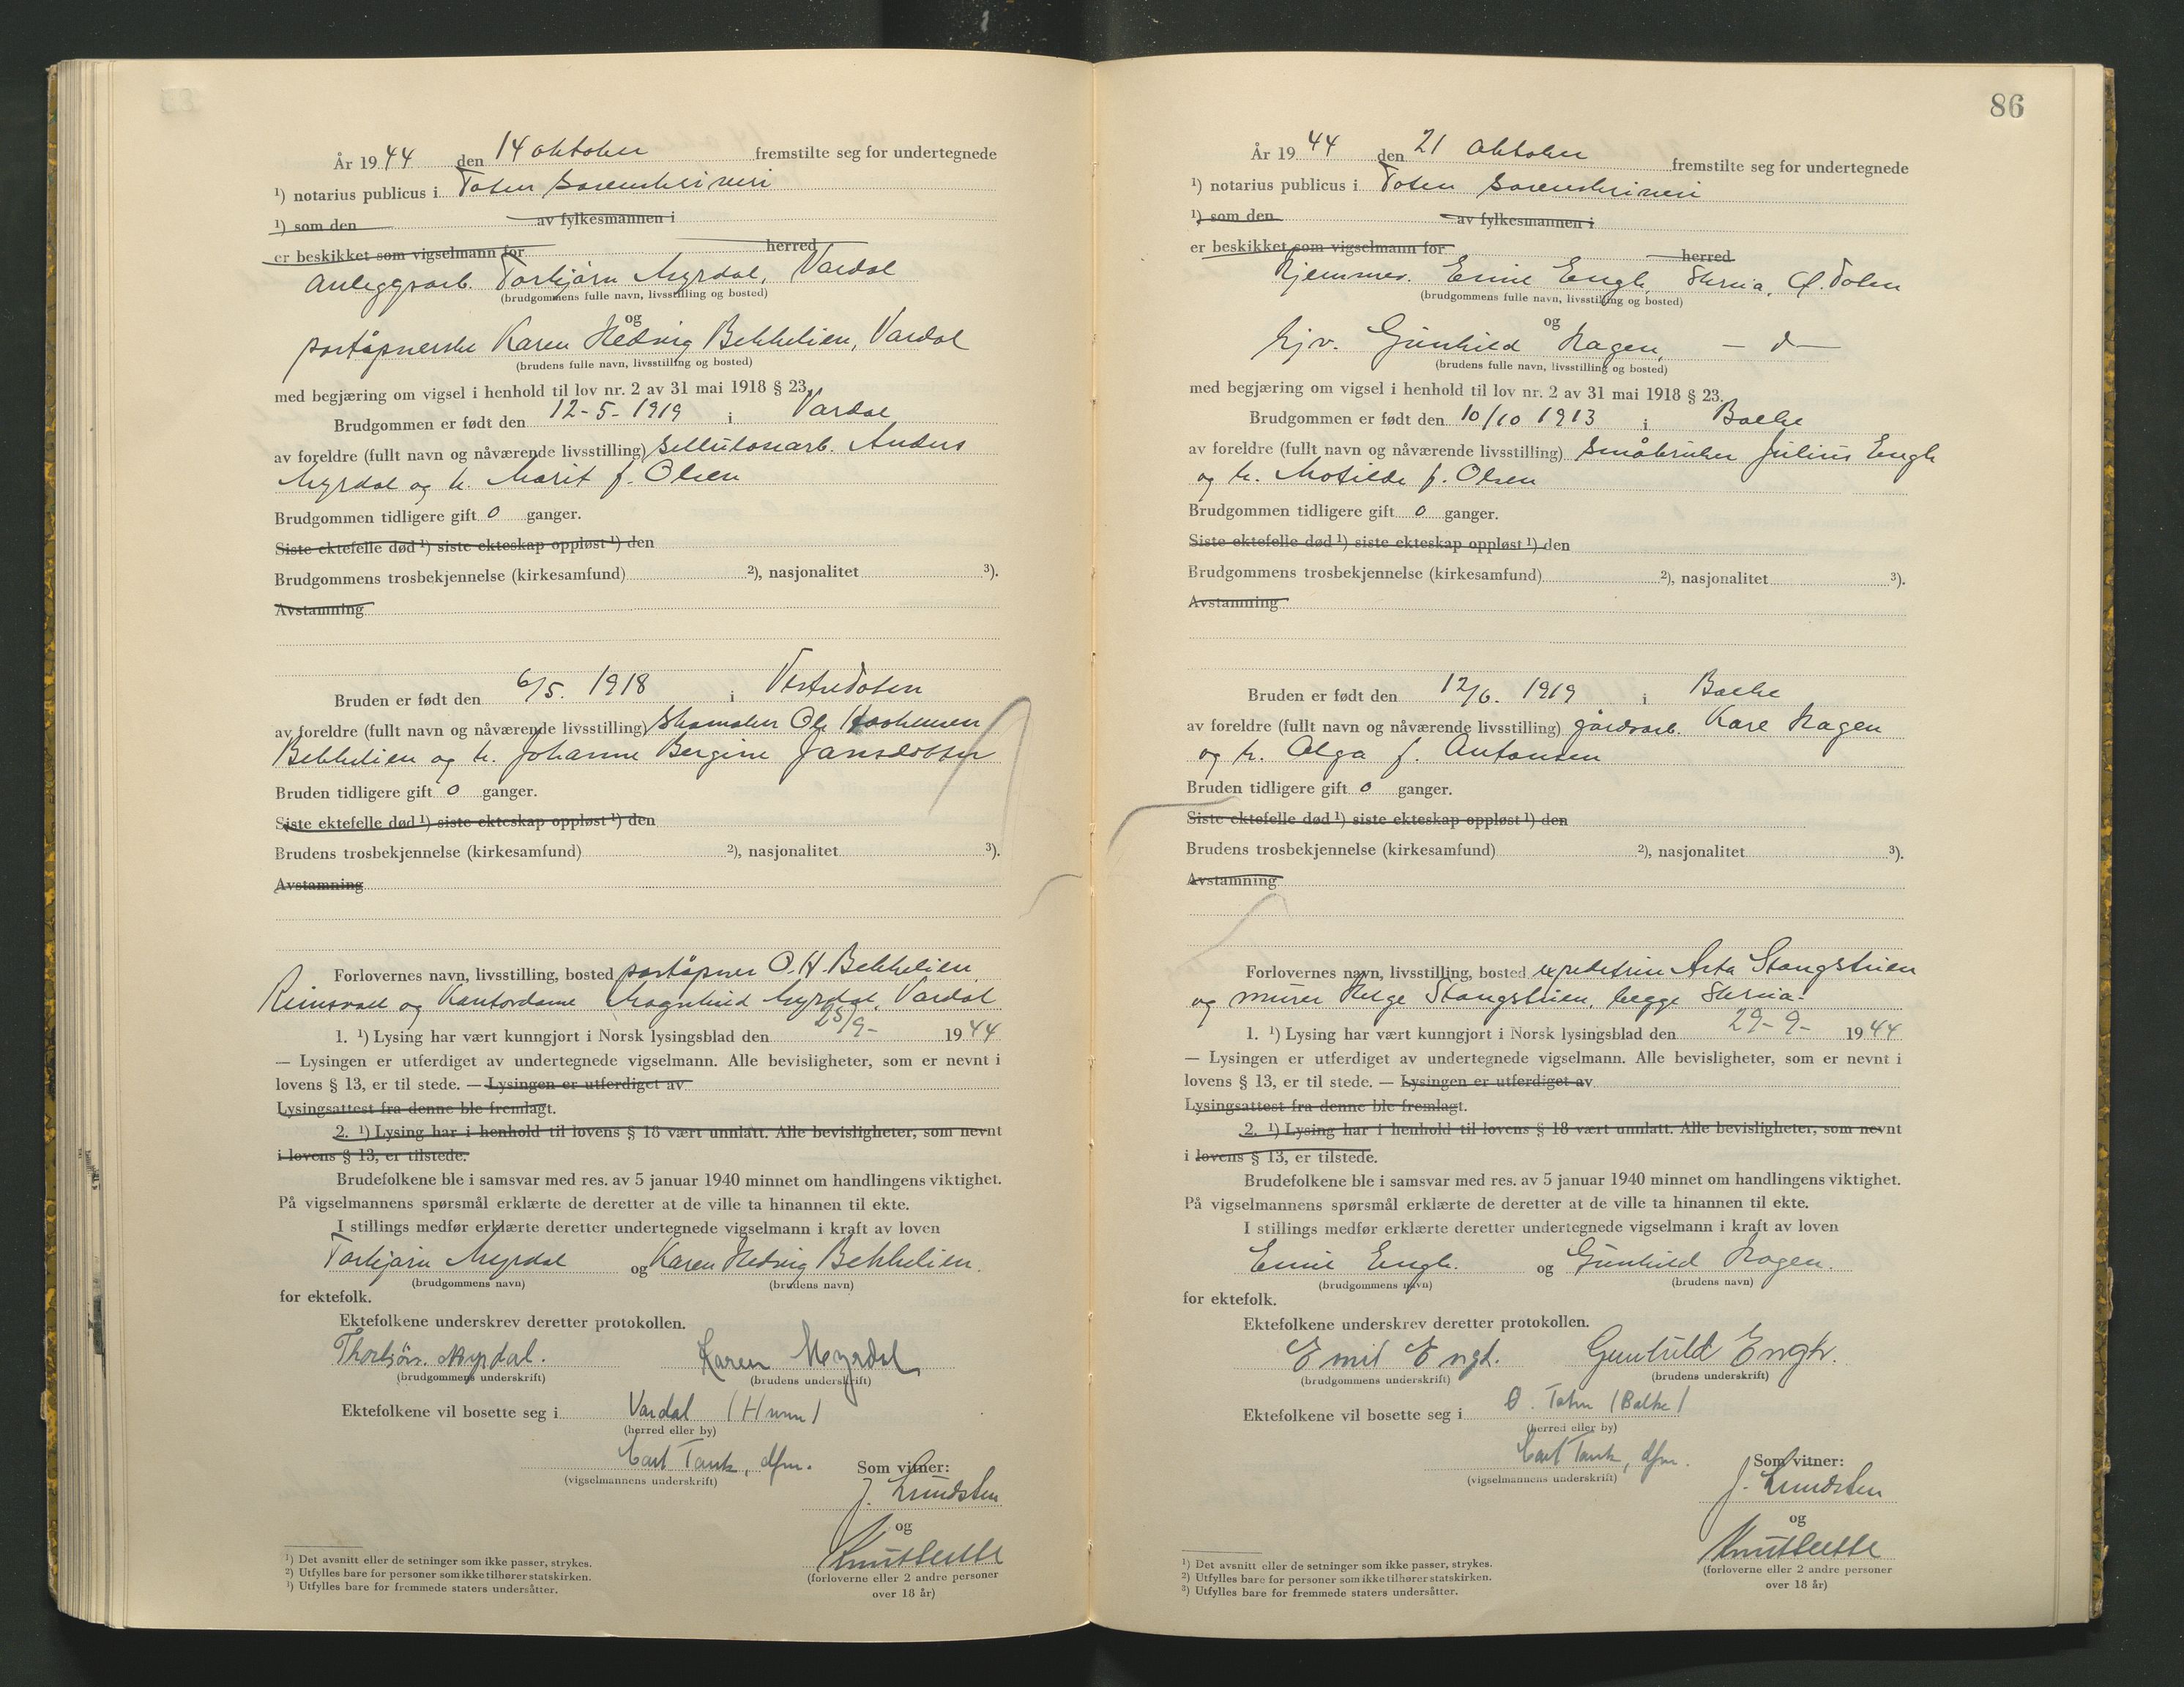 År 1944 den 14 oktober fremstilte seg for undertegnede
¹) notarius publicus i Toten sorenskriveri
¹) som den av fylkesmannen i
er beskikket som vigselmann for herred
Anleggsarb. Torbjørn Myrdal, Vardal
(brudgommens fulle navn, livsstilling og bosted)
og
poståpnerske Karen Hedvig Bekkelien, Vardal
(brudens fulle navn, livsstilling og bosted)
med begjæring om vigsel i henhold til lov nr. 2 av 31 mai 1918 § 23.
Brudgommen er født den 12-5-1919 i Vardal
av foreldre (fullt navn og nåværende livsstilling) sellulosearb. Anders
Myrdal og h. Marit f. Olsen
Brudgommen tidligere gift 0 ganger.
Siste ektefelle død ¹) siste ekteskap oppløst ¹) den
Brudgommens trosbekjennelse (kirkesamfund) ²), nasjonalitet ³).
Avstamning
Bruden er født den 6/5. 1918 i Vestre Toten
av foreldre (fullt navn og nåværende livsstilling) Skomaker Ole
Bekkelien og h. Johanne Bergine Jansdotter
Bruden tidligere gift 0 ganger.
Siste ektefelle død ¹) siste ekteskap oppløst ¹) den
Brudens trosbekjennelse (kirkesamfund) ²), nasjonalitet ³).
Avstamning
Forlovernes navn, livsstilling, bosted poståpner O. H. Bekkelien
Reinsvoll og Kontordame Magnhild Myrdal, Vardal
1. ¹) Lysing har vært kunngjort i Norsk lysingsblad den 25/9- 1944
— Lysingen er utferdiget av undertegnede vigselmann. Alle bevisligheter, som er nevnt i
lovens § 13, er til stede. — Lysingen er utferdiget av
Lysingsattest fra denne ble fremlagt.
2. ¹) Lysing har i henhold til lovens § 18 vært unnlatt. Alle bevisligheter, som nevnt
i lovens § 13, er tilstede.
Brudefolkene ble i samsvar med res. av 5 januar 1940 minnet om handlingens viktighet.
På vigselmannens spørsmål erklærte de deretter at de ville ta hinannen til ekte.
I stillings medfør erklærte deretter undertegnede vigselmann i kraft av loven
Torbjørn Myrdal og Karen Hedvig Bekkelien.
(brudgommens navn) (brudens navn)
for ektefolk.
Ektefolkene underskrev deretter protokollen.
Thorbjörn Myrdal. Karen Myrdal
(brudgommens underskrift) (brudens underskrift)
Ektefolkene vil bosette seg i Vardal (Hunn)
(herred eller by)
Carl Tank, dfm. Som vitner:
(vigselmannens underskrift)
J. Lundsten
og
(forloverne eller 2 andre personer
over 18 år)
¹) Det avsnitt eller de setninger som ikke passer, strykes.
²) Utfylles bare for personer som ikke tilhører statskirken.
³) Utfylles bare for fremmede staters undersåtter.
86
År 1944 den 21 oktober fremstilte seg for undertegnede
¹) notarius publicus i Toten sorenskriveri
¹) som den av fylkesmannen i
er beskikket som vigselmann for herred
Hjemmev. Emil Engh, Skreia, Ø. Toten
(brudgommens fulle navn, livsstilling og bosted)
og
Hjv. Gunhild Hagen, — d —
(brudens fulle navn, livsstilling og bosted)
med begjæring om vigsel i henhold til lov nr. 2 av 31 mai 1918 § 23.
Brudgommen er født den 10/10 1913 i Balke
av foreldre (fullt navn og nåværende livsstilling) Småbruker Julius Engh
og h. Matilde f. Olsen
Brudgommen tidligere gift 0 ganger.
Siste ektefelle død ¹) siste ekteskap oppløst ¹) den
Brudgommens trosbekjennelse (kirkesamfund) ²), nasjonalitet ³).
Avstamning
Bruden er født den 12/6. 1919 i Balke
av foreldre (fullt navn og nåværende livsstilling) gårdsarb. Kare Hagen
og h. Olga f. Antonsen
Bruden tidligere gift 0 ganger.
Siste ektefelle død ¹) siste ekteskap oppløst ¹) den
Brudens trosbekjennelse (kirkesamfund) ²), nasjonalitet ³).
Avstamning
Forlovernes navn, livsstilling, bosted Asta Stangstuen
og murer Helge Stangstuen, begge Skreia.
1. ¹) Lysing har vært kunngjort i Norsk lysingsblad den 29-9- 1944
— Lysingen er utferdiget av undertegnede vigselmann. Alle bevisligheter, som er nevnt i
lovens § 13, er til stede. — Lysingen er utferdiget av
Lysingsattest fra denne ble fremlagt.
2. ¹) Lysing har i henhold til lovens § 18 vært unnlatt. Alle bevisligheter, som nevnt
i lovens § 13, er tilstede.
Brudefolkene ble i samsvar med res. av 5 januar 1940 minnet om handlingens viktighet.
På vigselmannens spørsmål erklærte de deretter at de ville ta hinannen til ekte.
I stillings medfør erklærte deretter undertegnede vigselmann i kraft av loven
Emil Engh. og Gunhild Hagen.
(brudgommens navn) (brudens navn)
for ektefolk.
Ektefolkene underskrev deretter protokollen.
Emil Engh. Gunhild Engh.
(brudgommens underskrift) (brudens underskrift)
Ektefolkene vil bosette seg i Ø. Toten (Balke)
(herred eller by)
Carl Tank, dfm. Som vitner:
(vigselmannens underskrift)
J. Lundsten
og
(forloverne eller 2 andre personer
over 18 år)
¹) Det avsnitt eller de setninger som ikke passer, strykes.
²) Utfylles bare for personer som ikke tilhører statskirken.
³) Utfylles bare for fremmede staters undersåtter.